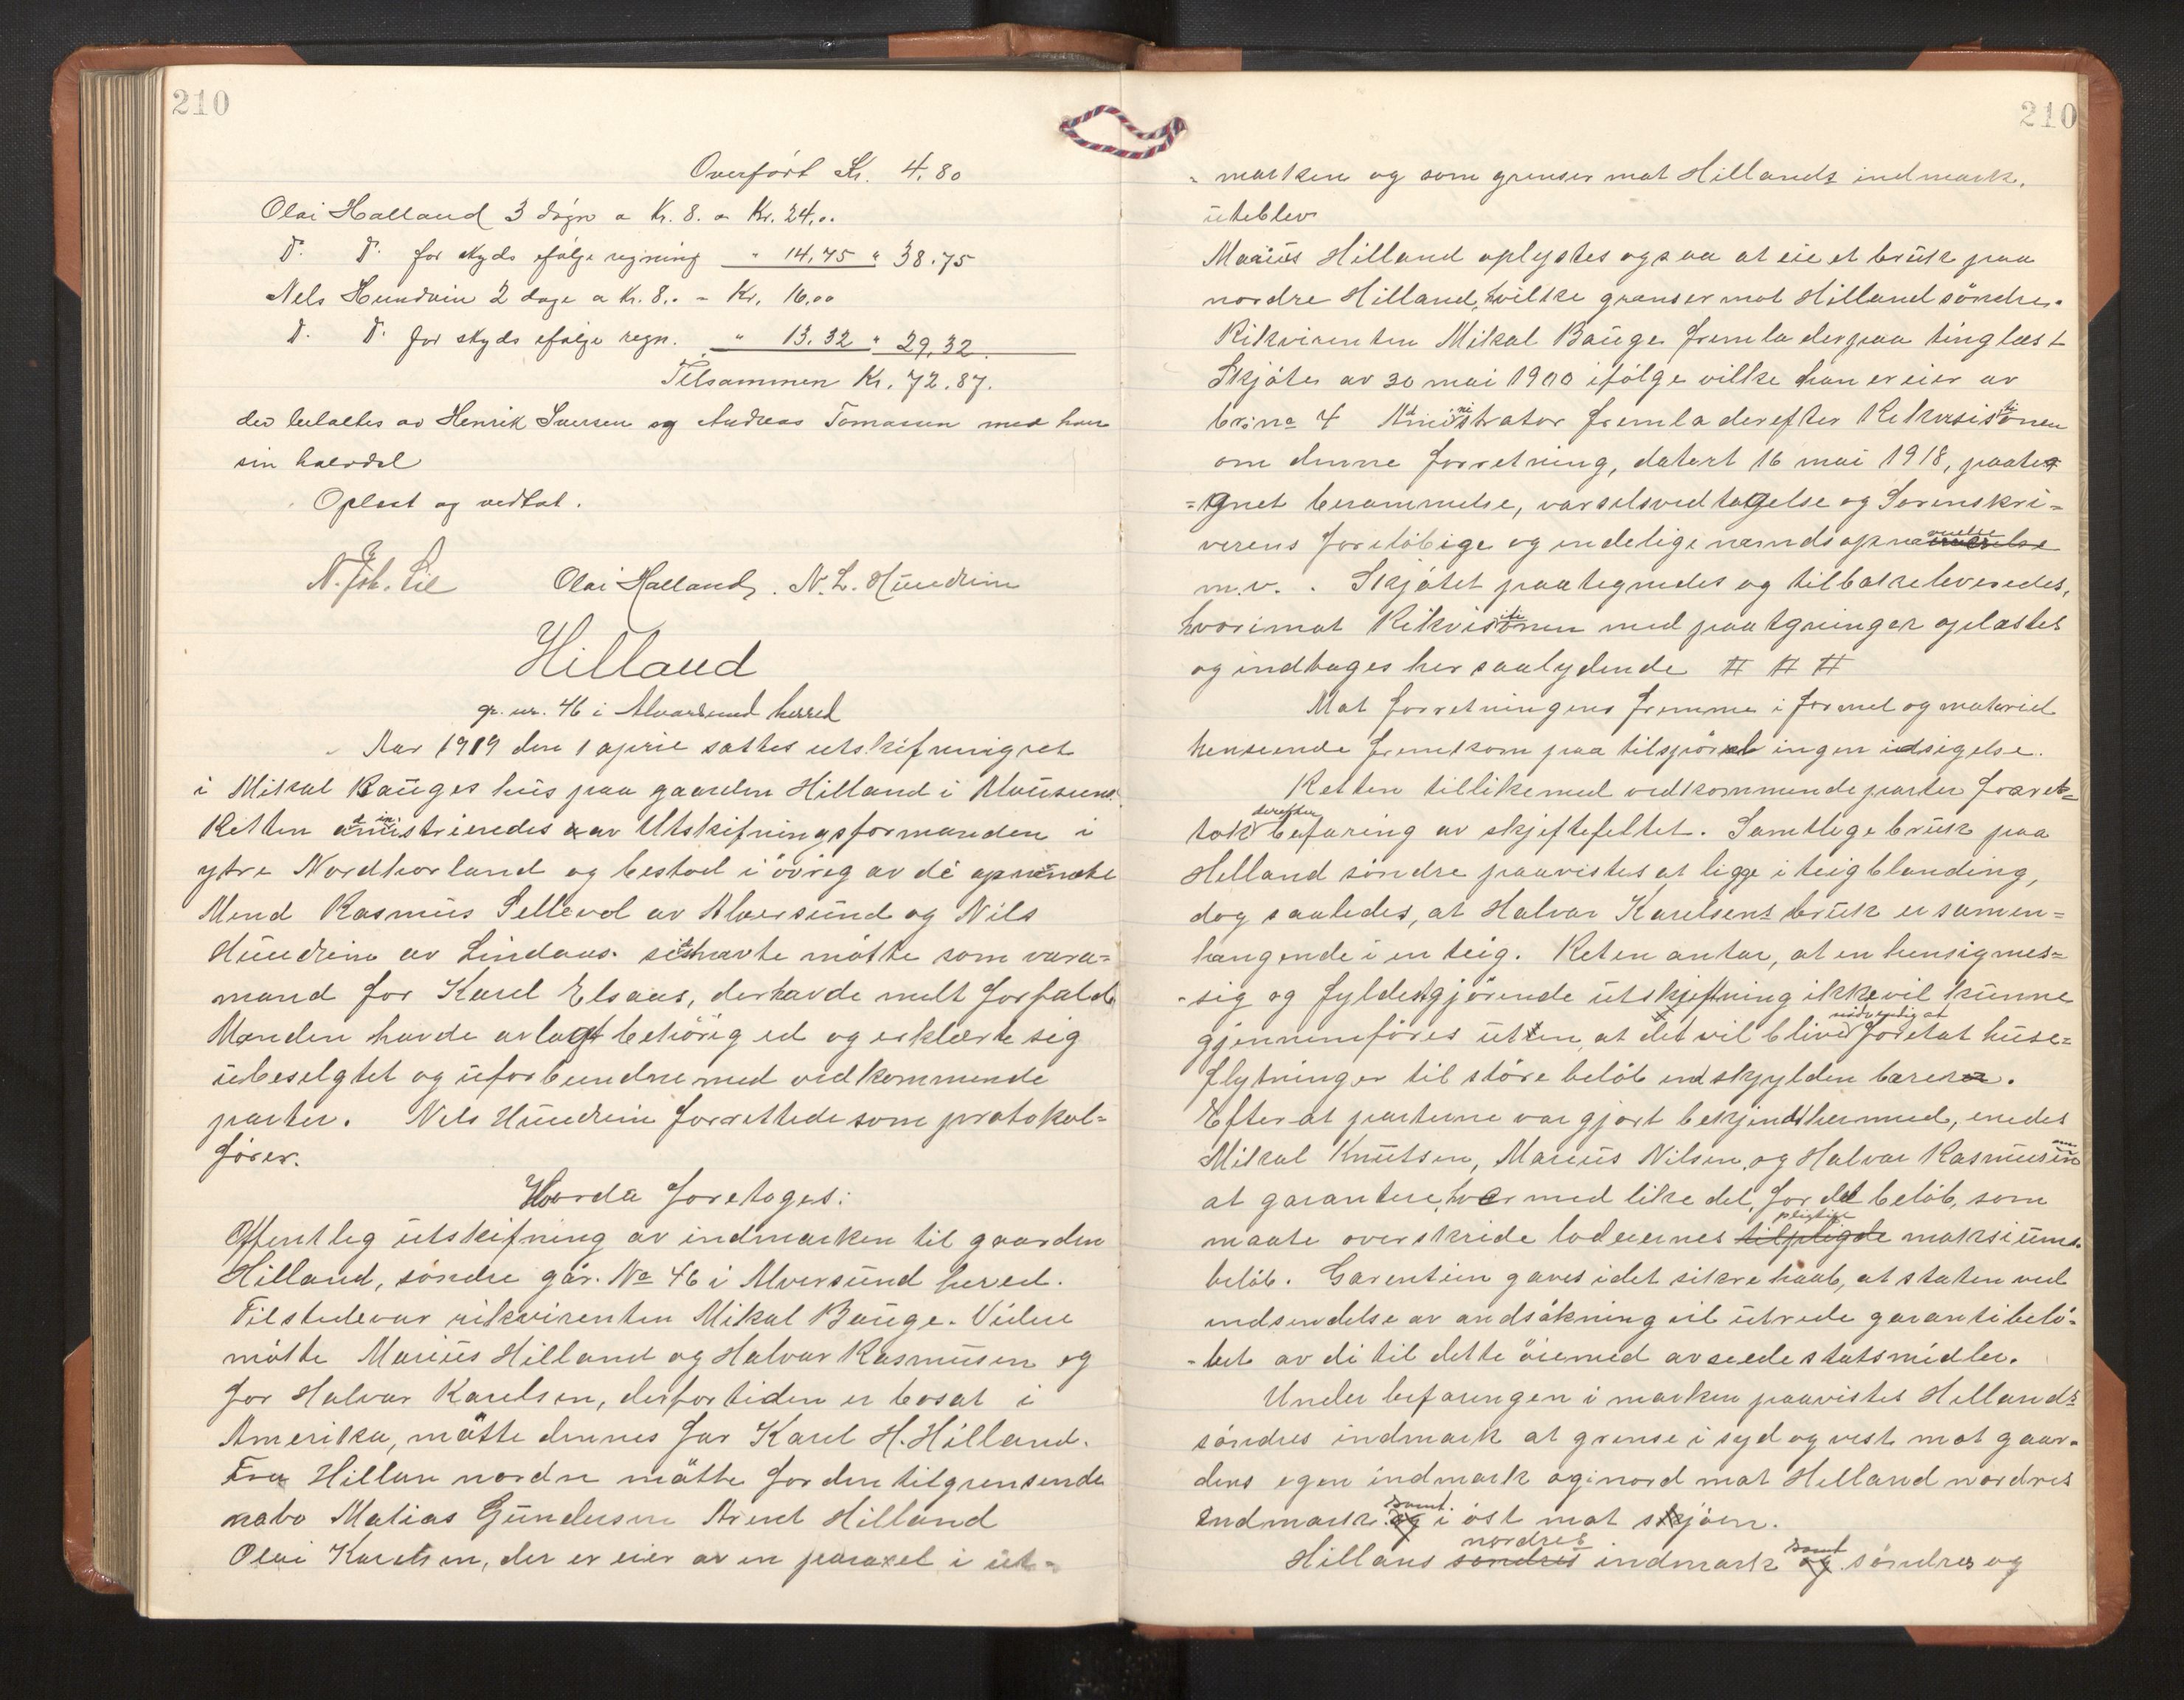 210
Overført Kr. 4.80
Olai Halland 3 døgn a Kr. 8. = Kr. 24,0.
D. D. for skyds efølge regning " 14,75 " 38.75
Nels Hundvin 2 dage a Kr. 8.. = Kr. 16,00
D. D. for skyds efølge regn. " 13.32 " 29.32.
Tilsammen Kr. 72.87.
der betaltes av Henrik Iversen og Andreas Tomasen med hver
sin halvdel
Oplest og vedtat.
N. Joh. Lie Olai Halland. N. L. Hundvin
Hilland
gr. nr. 46 i Alversund herred
Aar 1919 den 1 april sattes utskifningret
i Mikal Bauges hus paa gaarden Hilland i Alversund.
Retten administrieredes av Utskifningsformanden i
ytre Nordhorland og bestod i øvrig av de opnævnte
Mend Rasmus Sellevol av Alversund og Nils
Hundvin av Lindaas. sistnævte møtte som vara=
mand for Karel Elsaas, der havde melt forfald
Mænden havde avlagt behørig ed og erklærte sig
ubeselgtet og uforbundne med vedkommende
parter. Nels Hundvin forrettede som protokol=
fører.
Hvorda foretoges:
Offentleg utskifning av indmarken til gaarden
Hilland, søndre går. No 46 i Alversund hered.
Tilstede var rikvirenten Mikal Bauge. Videre
møtte Marius Hilland og Halvar Rasmusen og
for Halvar Karelsen, der for tiden er bosat i
Amerika, møtte dennes far Karel H. Hilland.
Fra Hillan nordre møtte for den tilgrensende
nabo Matias Gundersen Arent Hilland
Olai Karelsen, der er eier av en parsel i ut=
210
= marken og som grenser mot Hillands indmark,
uteblev
Marius Hilland oplystes ogsaa at eie et bruk paa
nordre Hilland, hvilke grenser mot Hilland søndre.
Rikvirenten Mikal Bauge fremla derpaa tinglæst
Skjøte av 30 mai 1900 ifølge vilke han er eier av
br. no 4 Administrator fremla derefter Rekvisisionen
om denne forretning, datert 16 mai 1918, paateg
=gnet berammelse, varselsvedtagelse og Sorenskri=
verens foreløbige og endelige nævndsopnævnelse
m.v. . Skjøtet paategnedes og tilbakeleveredes,
hvorimot Rikvisitionen med paategninger oplæstes
og indtages her saalydende # # #
Mot forretningens fremme i formel og materiel
henseende fremkom paa tilspørsel ingen idsigelse.
Retten tillikemed vedkommende parter foret=
tok derefter befaring av skjeftefeltet. Samtlege bruk paa
Helland søndre paavistes at ligge i teigblanding,
dog saaledes, at Halvar Karelsens bruk er samen=
hængende i en teig. Reten antar, at en hensigmes=
=sig og fyldestgjørende utskjeftning ikke vil kunne
gjennemføres uten, at det vil blive nødvendig at foretat huse=
flytninger til støre beløb end skylden bærer.
Efter at parterne var gjort bekjendt hermed, enedes
Mikal Knutsen, Marius Nilsen og Halvar Rasmusen
at garantere, hver med like del, for det beløb, som
maate overskride lodeiernes pligtige maksiums.
beløb. Garentien gaves i det sikre haab, at staten ved
indsendelse av andsøkning vil utrede garantibelø=
=bet av di til dette øiemed avseede statsmidler.
Under befaringen i marken paavistes Hellands
søndres indmark at grense i syd og vest mot gaar=
dens egen indmark og i nord mot Helland nordres
indmark samt i øst mot sjøen.
Hillans nordres indmark samt søndres og